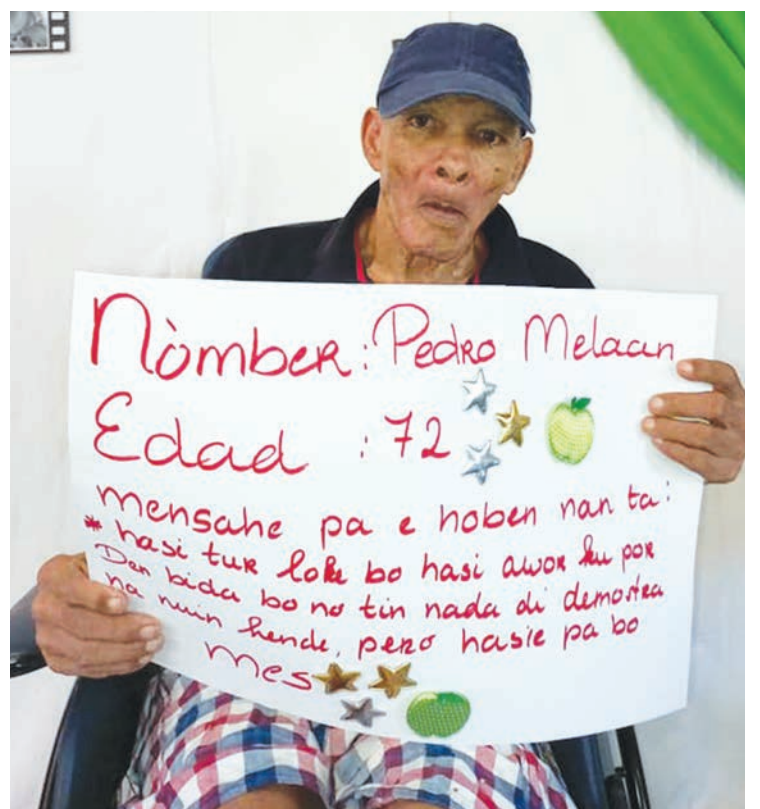 Nòmber: Pedro Melaan
Edad : 72
mensahe pa e hoben nan ta:
* hasi tur loke bo hasi awor ku por
Den bida bo no tin nada di demostra
na niun hende, pero hasie pa bo
mes